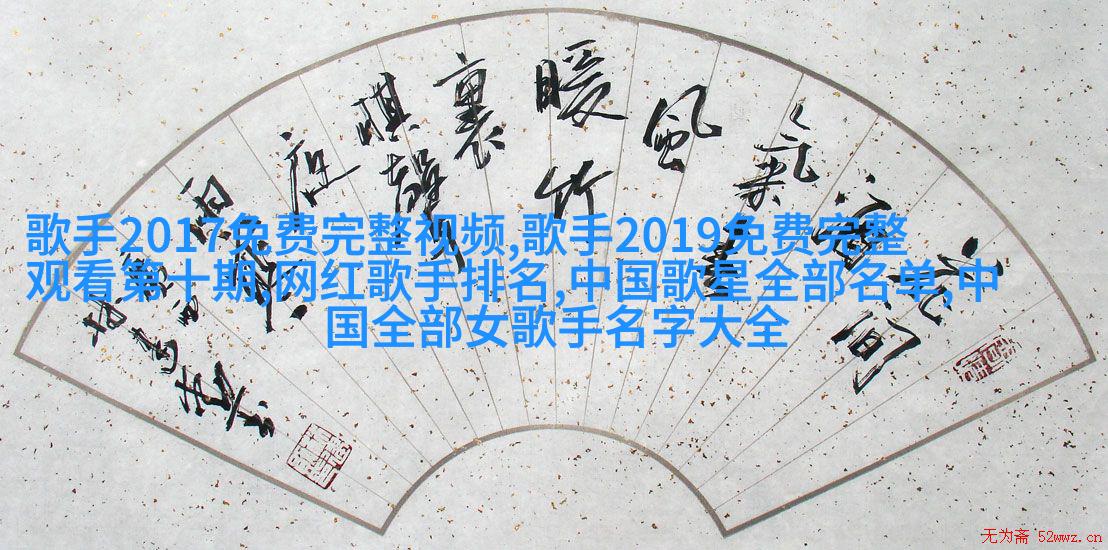 歌手2017免费完整视频,歌手2019免费完整
观看第十期,网红歌手排名,中国歌星全部名单,中
国全部女歌手名字大全
花間
酒
氣
風
暖竹
裏
棋聲
夜
雨
无为斋 52wwz.cn